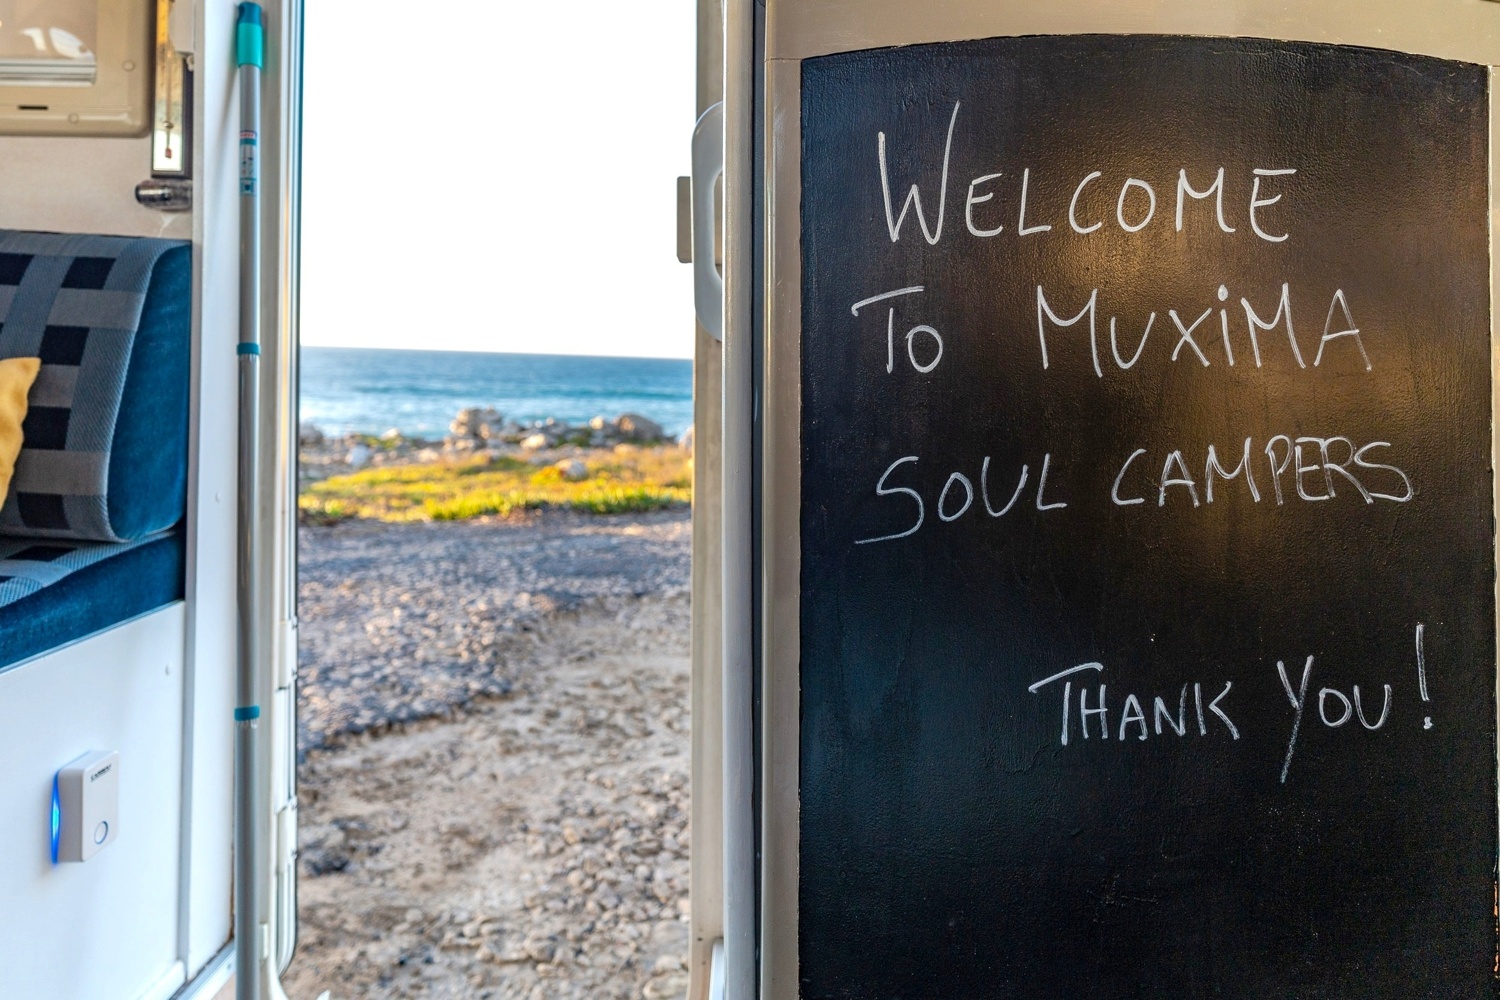 WELCOME
TO MUXiMA
SOUL CAMPERS
THANK YOU!